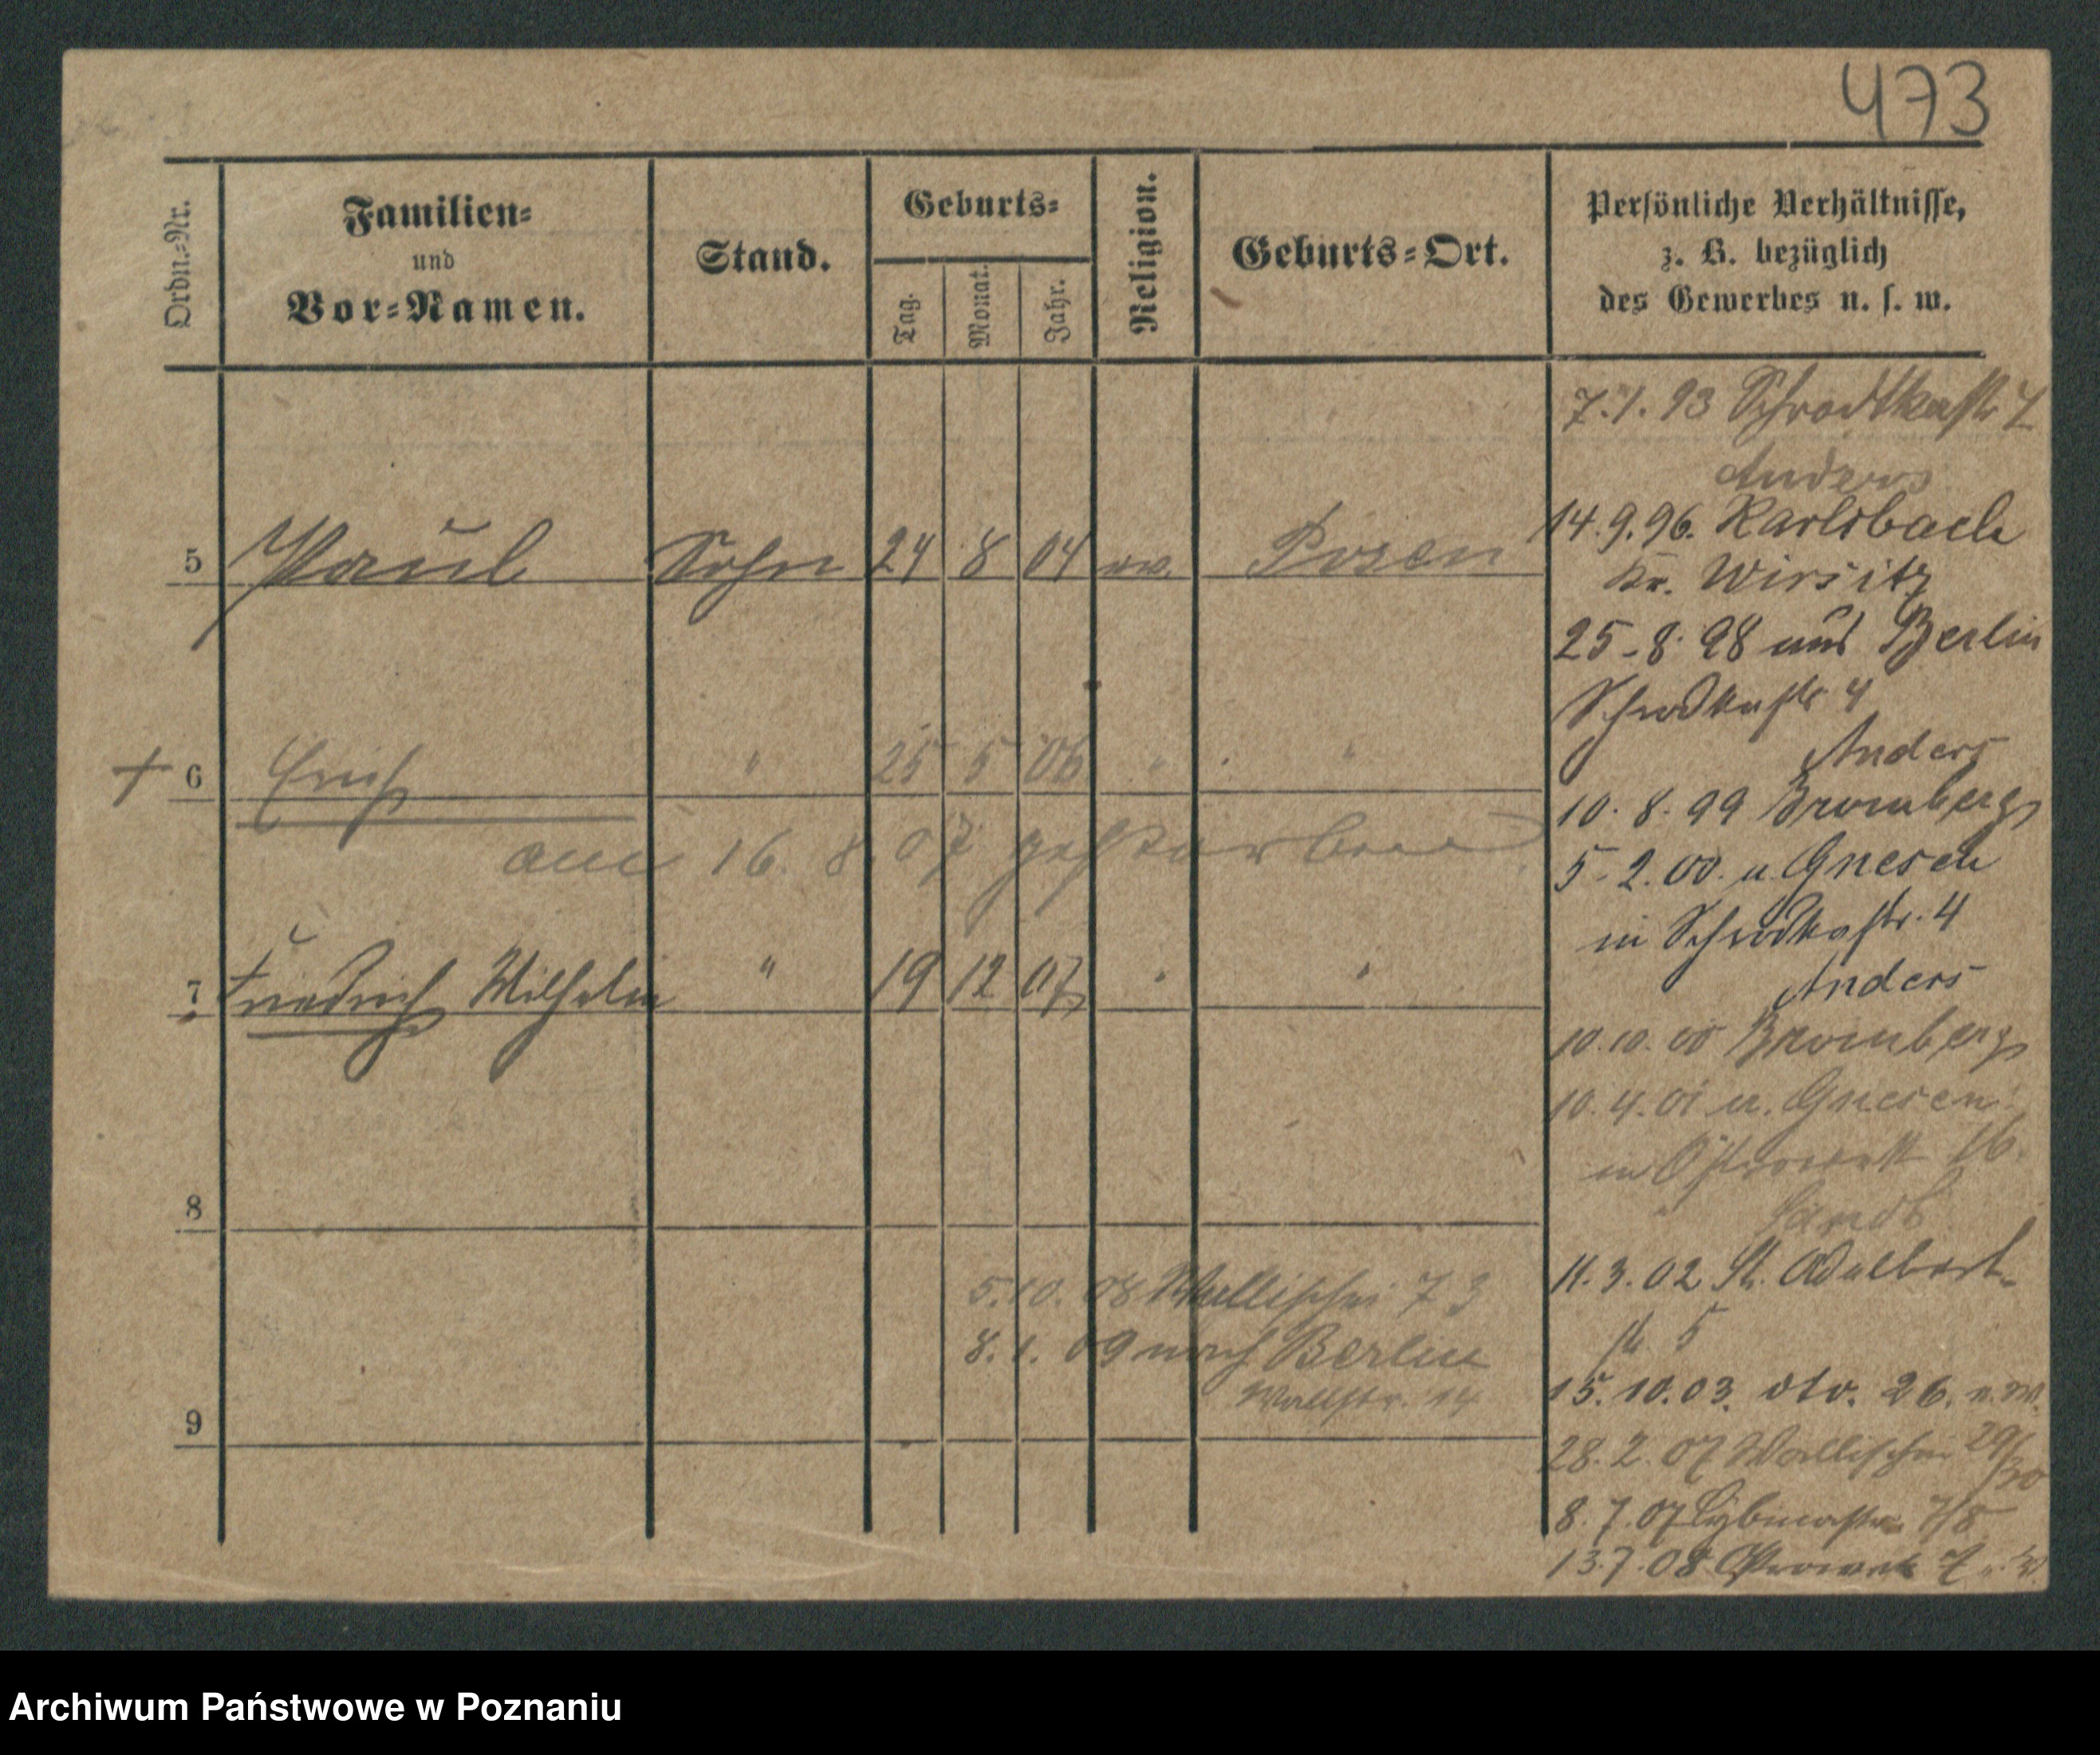 473
Ordn.-Nr.
Familien-
und
Vor-Namen.
Stand.
Geburts-
Tag.
Monat.
Jahr.
Religion.
Geburts-Ort.
Persönliche Verhältnisse,
z. B. bezüglich
des Gewerbes u. s. w.
5 Paul Sohn 24 8 04 ev. Posen
+ 6 Erich " 25 5 06 " "
am 16. 8. 07 gestorben
7 Friedrich Wilhelm " 19 12 07 " "
8
5. 10. 08 Wallischei 73
8. 1. 09 nach Berlin
Wallstr. 14
9
7. 1. 93 Schrodkastr 4
Anders
14. 9. 96. Karlsbach
Kr. Wirsitz
25. 8. 98 aus Berlin
Schrodkastr 4
Anders
10. 8. 99 Bromberg
5. 2. 00. u. Gnesen
in Schrodkastr. 4
Anders
10. 10. 00 Bromberg
10. 4. 01 u. Gnesen
in Ostrowek 16.
11. 3. 02 St. Adalbert-
str 5
15. 10. 03. dto. 26.
28. 2. 07 Wallischei 29/30
8. 7. 07 Cybinastr. 7/8
13. 7. 08 Ostrowek 7
Archiwum Państwowe w Poznaniu